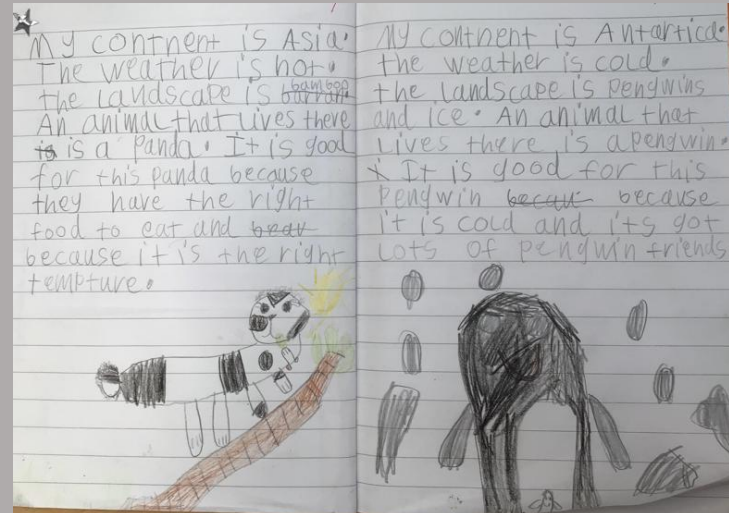 My contnent is Asia.
The weather is hot.
bamboo
the landscape is
An animal that lives there
is is a Panda. It is good
for this panda because
they have the right
food to eat and
because it is the right
tempture.
My contnent is Antartica.
the weather is cold.
the landscape is pengwins
and ice. An animal that
lives there is a pengwin.
x It is good for this
pengwin becau because
it is cold and its got
lots of pengwin friends